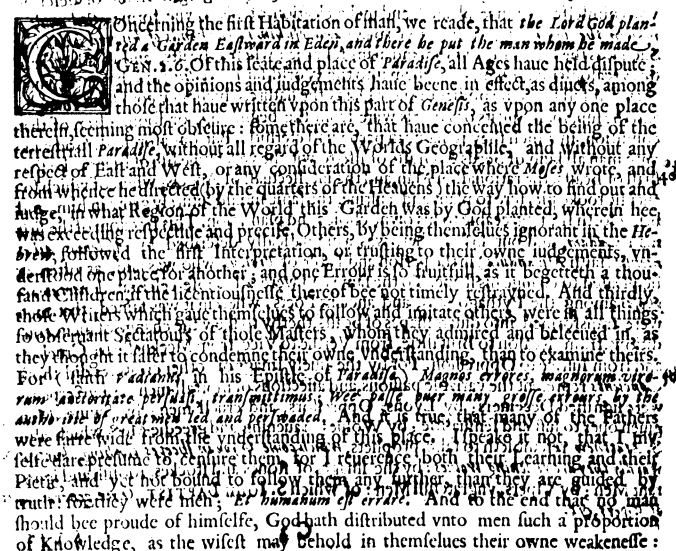 COncerning the first Habitation of man, we reade, that the Lord God plan-
ted a Garden Eastward in Eden, and there he put the man whom he made,
GEN. 2. 6. Of this seate and place of Paradise, all Ages haue held dispute;
and the opinions and iudgements haue beene in effect, as diuers, among
those that haue written vpon this part of Genesis, as vpon any one place
therein, seeming most obscure: some there are, that haue conceiued the being of the
terrestriall Paradise, without all regard of the Worlds Geographie, and without any
respect of East and West, or any consideration of the place where Moses wrote, and
from whence he directed (by the quarters of the Heauens) the way how to find out and
iudge, in what Region of the World this Garden was by God planted, wherein hee
was exceeding respectiue and precise. Others, by being themselues ignorant in the He-
brew, followed the first Interpretation, or trusting to their owne iudgements, vn-
derstood one place for another; and one Errour is so fruitfull, as it begetteth a thou-
sand Children, if the licentiousnesse thereof bee not timely restrayned. And thirdly,
those Writers which gaue themselues to follow and imitate others, were in all things
so obseruant Sectatours of those Masters, whom they admired and beleeued in, as
they thought it safer to condemne their owne vnderstanding, than to examine theirs.
For (saith Vadianus in his Epistle of Paradise) Magnos errores, magnorum viro-
rum auctoritate persuasi, transmittimus; Wee passe ouer many grosse errours, by the
authoritie of great men led and perswaded. And it is true, that many of the Fathers
were farre wide from the vnderstanding of this place. I speake it not, that I my
selfe dare presume to censure them, for I reuerence both their Learning and their
Pietie, and yet not bound to follow them any further, than they are guided by
truth: for they were men; Et humanum est errare. And to the end that no man
should bee proude of himselfe, God hath distributed vnto men such a proportion
of Knowledge, as the wisest may behold in themselues their owne weakenesse: